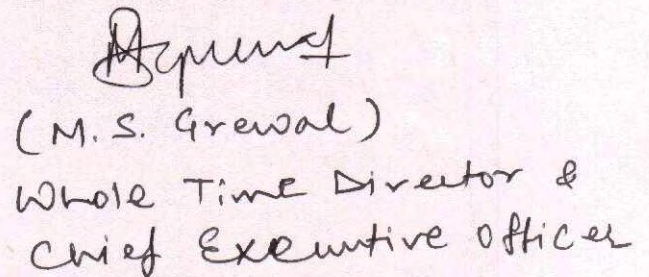 (M.S. Grewal)
Whole Time Director &
Chief Executive Officer